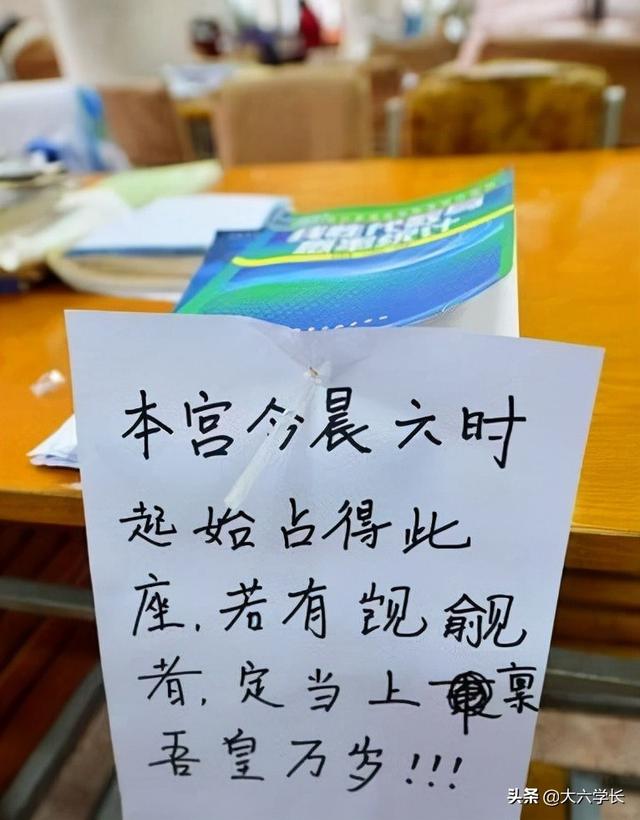 线性代数
概率统计
本宫今晨六时
起始占得此
座,若有觊觎
者,定当上禀
吾皇万岁!!!
头条 @大六学长